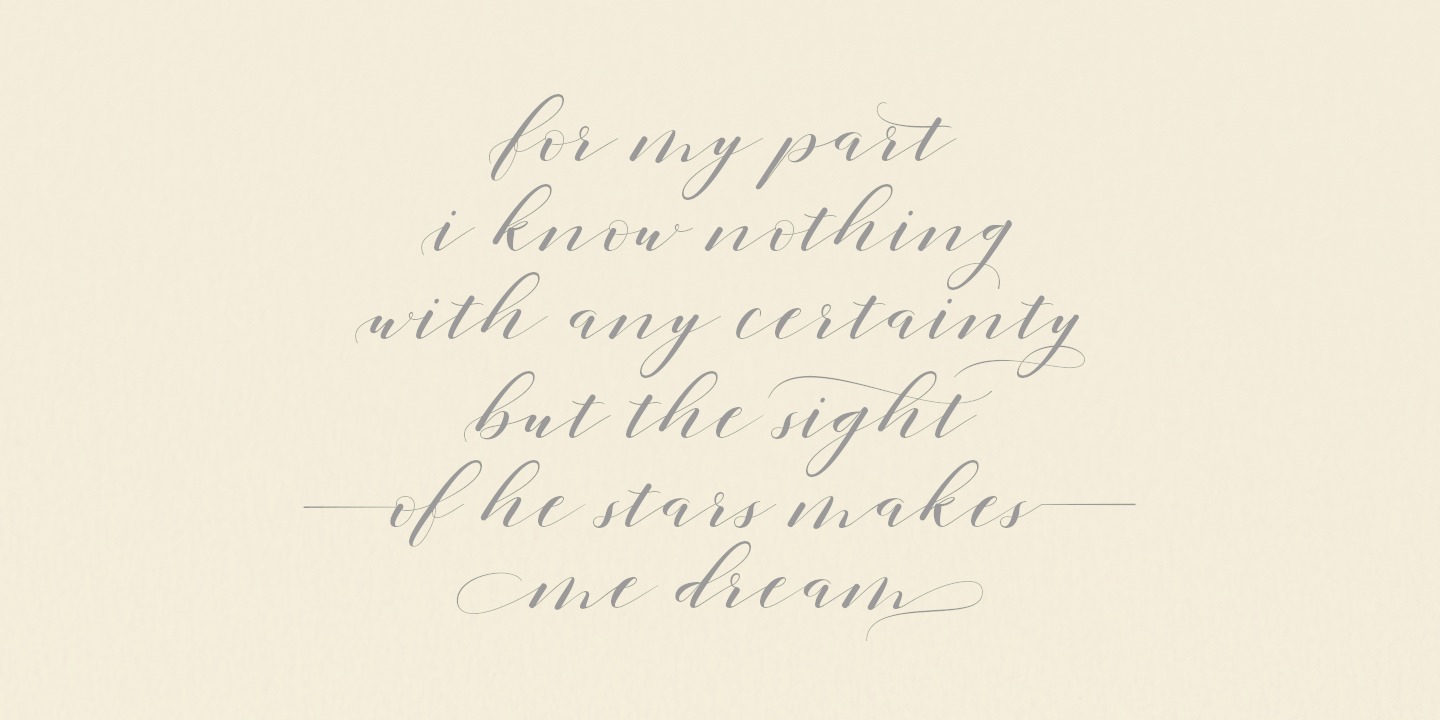 for my part
i know nothing
with any certainty
but the sight
of he stars makes
me dream